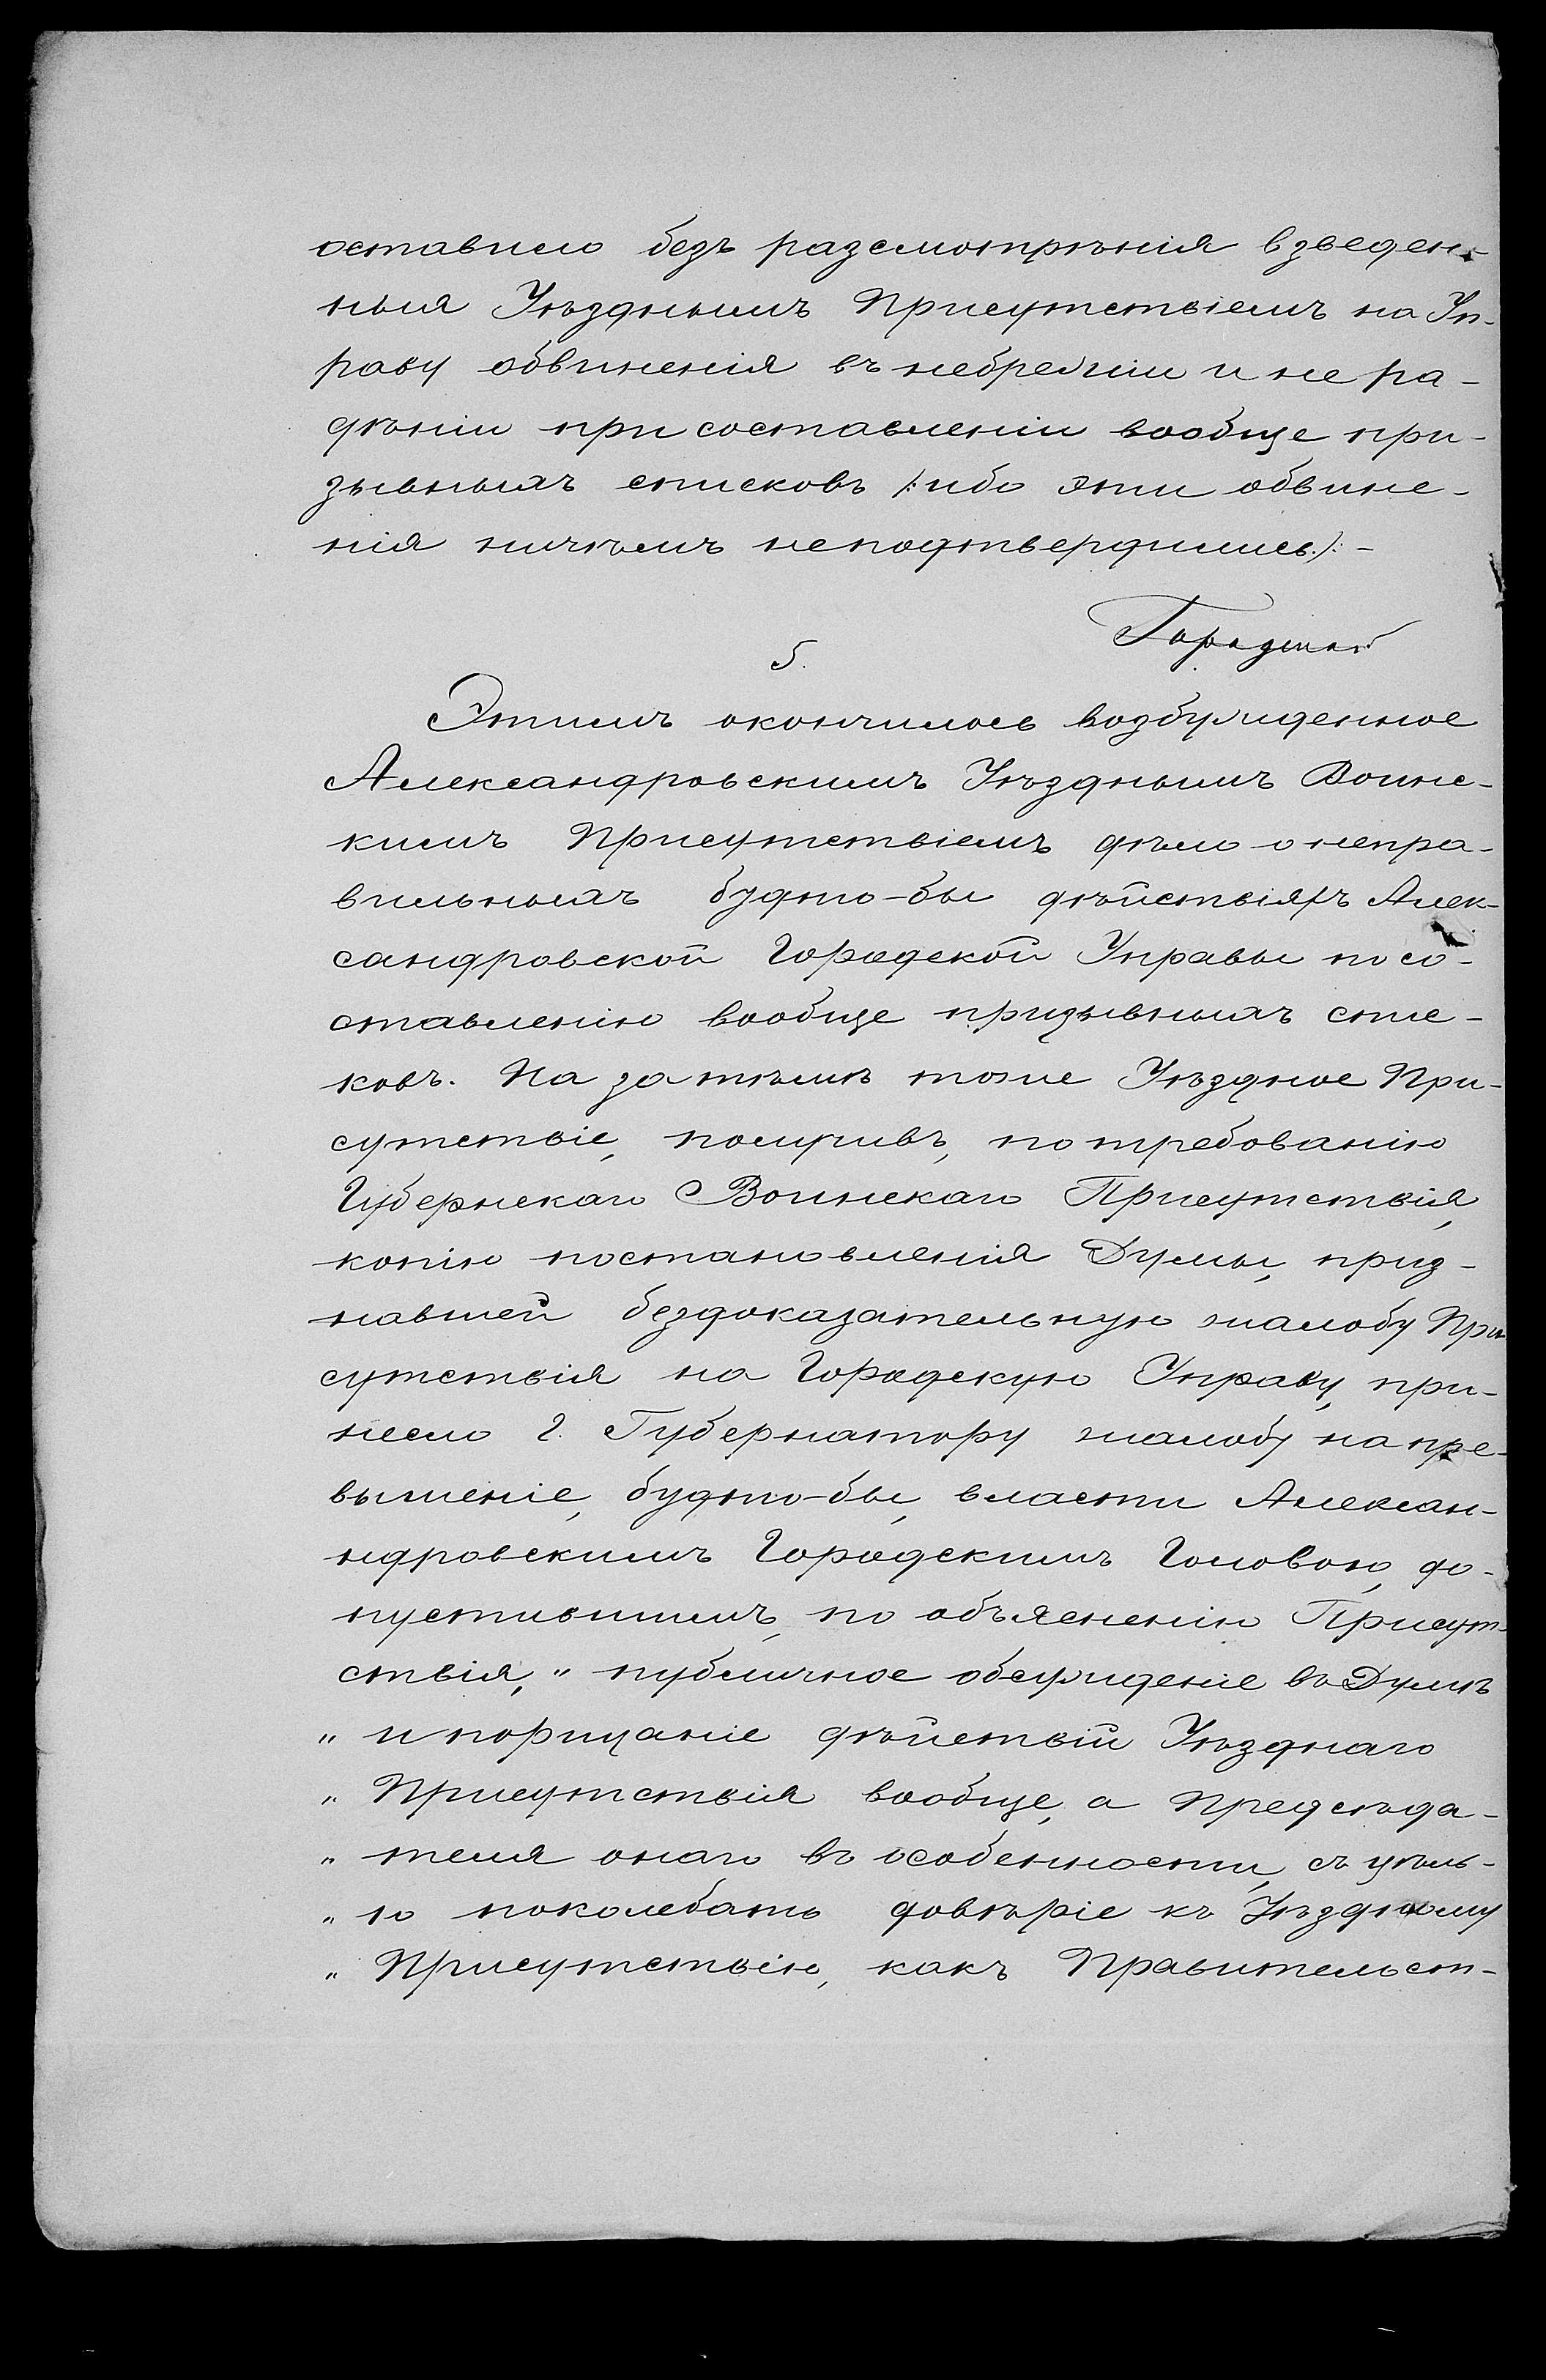 оставило безъ разсмотрѣнія взведен-
ныя Уѣзднымъ Присутствіемъ на Уп-
раву обвиненія въ небрежіи и не ра-
дѣніи при составленіи вообще при-
зывныхъ списковъ /: ибо эти обвине-
нія ничѣмъ неподтвердились :/ -
5.
Этимъ окончилось возбужденное
Александровскимъ Уѣзднымъ Воинс-
кимъ Присутствіемъ дѣло о непра-
вильныхъ будто-бы дѣйствіяхъ Алек-
сандровской Городской Управы по со-
ставленію вообще призывныхъ спис-
ковъ. На затѣмъ тоже Уѣздное При-
сутствіе, получивъ, по требованію
Губернскаго Воинскаго Присутствія,
копію постановленія Думы, приз-
навшей бездоказательную жалобу При
сутствія на Городскую Управу, при-
несло Г. Губернатору жалобу на пре-
вышеніе, будто-бы, власти Алексан-
ндровскимъ Городскимъ Головою, до-
пустившимъ, по объясненію Присут-
ствія, „ публичное обсужденіе въ Думѣ
„ и порицаніе дѣйствій Уѣзднаго
„ Присутствія вообще, а Предсѣда-
„ теля онаго въ особенности, съ цѣль-
„ ю поколебать довѣріе къ Уѣздному
„ Присутствію, какъ Правительст-